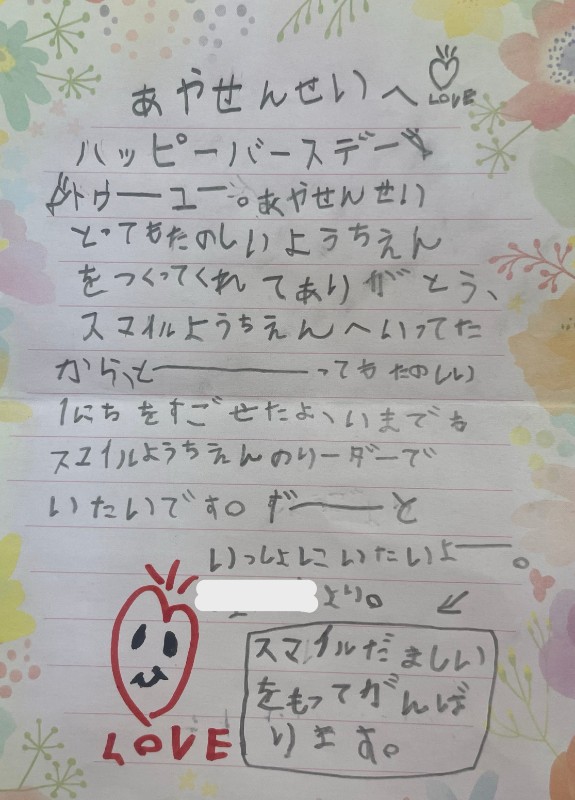 あやせんせいへ
LOVE
ハッピーバースデー
トゥーユー。あやせんせい
とってもたのしいようちえん
をつくってくれてありがとう、
スマイルようちえんへいってた
から、と―――ってもたのしい
1にちをすごせたよ、いまでも
スマイルようちえんのリーダーで
いたいです。ず―――と
いっしょにいたいよー。
より。
スマイルだましい
をもってがんば
ります。
LOVE